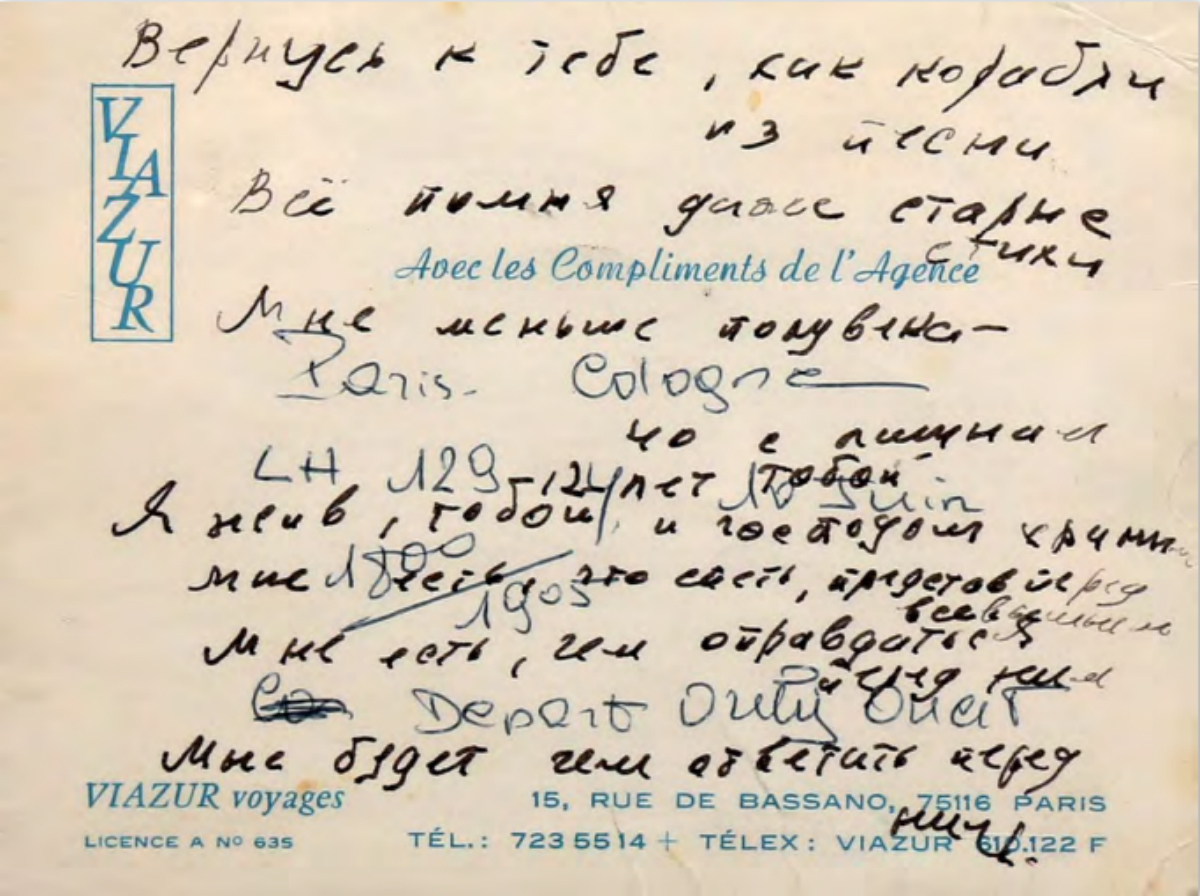 Вернусь к тебе, как корабли
из песни
Всё помня даже старые
стихи
VIAZUR
Avec les Compliments de l'Agence
Мне меньше полувека —
Paris - Cologne
но с лишним
LH 129 10 Juin
12 лет тобой
Я жив, тобой и господом храним
1800
мне есть, что спеть, представ перед
1905
всевышним
Мне есть, чем оправдаться
перед ним
Depart Orly Ouest
Мне будет чем ответить перед
ним!
VIAZUR voyages
15, RUE DE BASSANO, 75116 PARIS
LICENCE A Nº 635
TÉL.: 723 55 14 + TÉLEX : VIAZUR 610.122 F